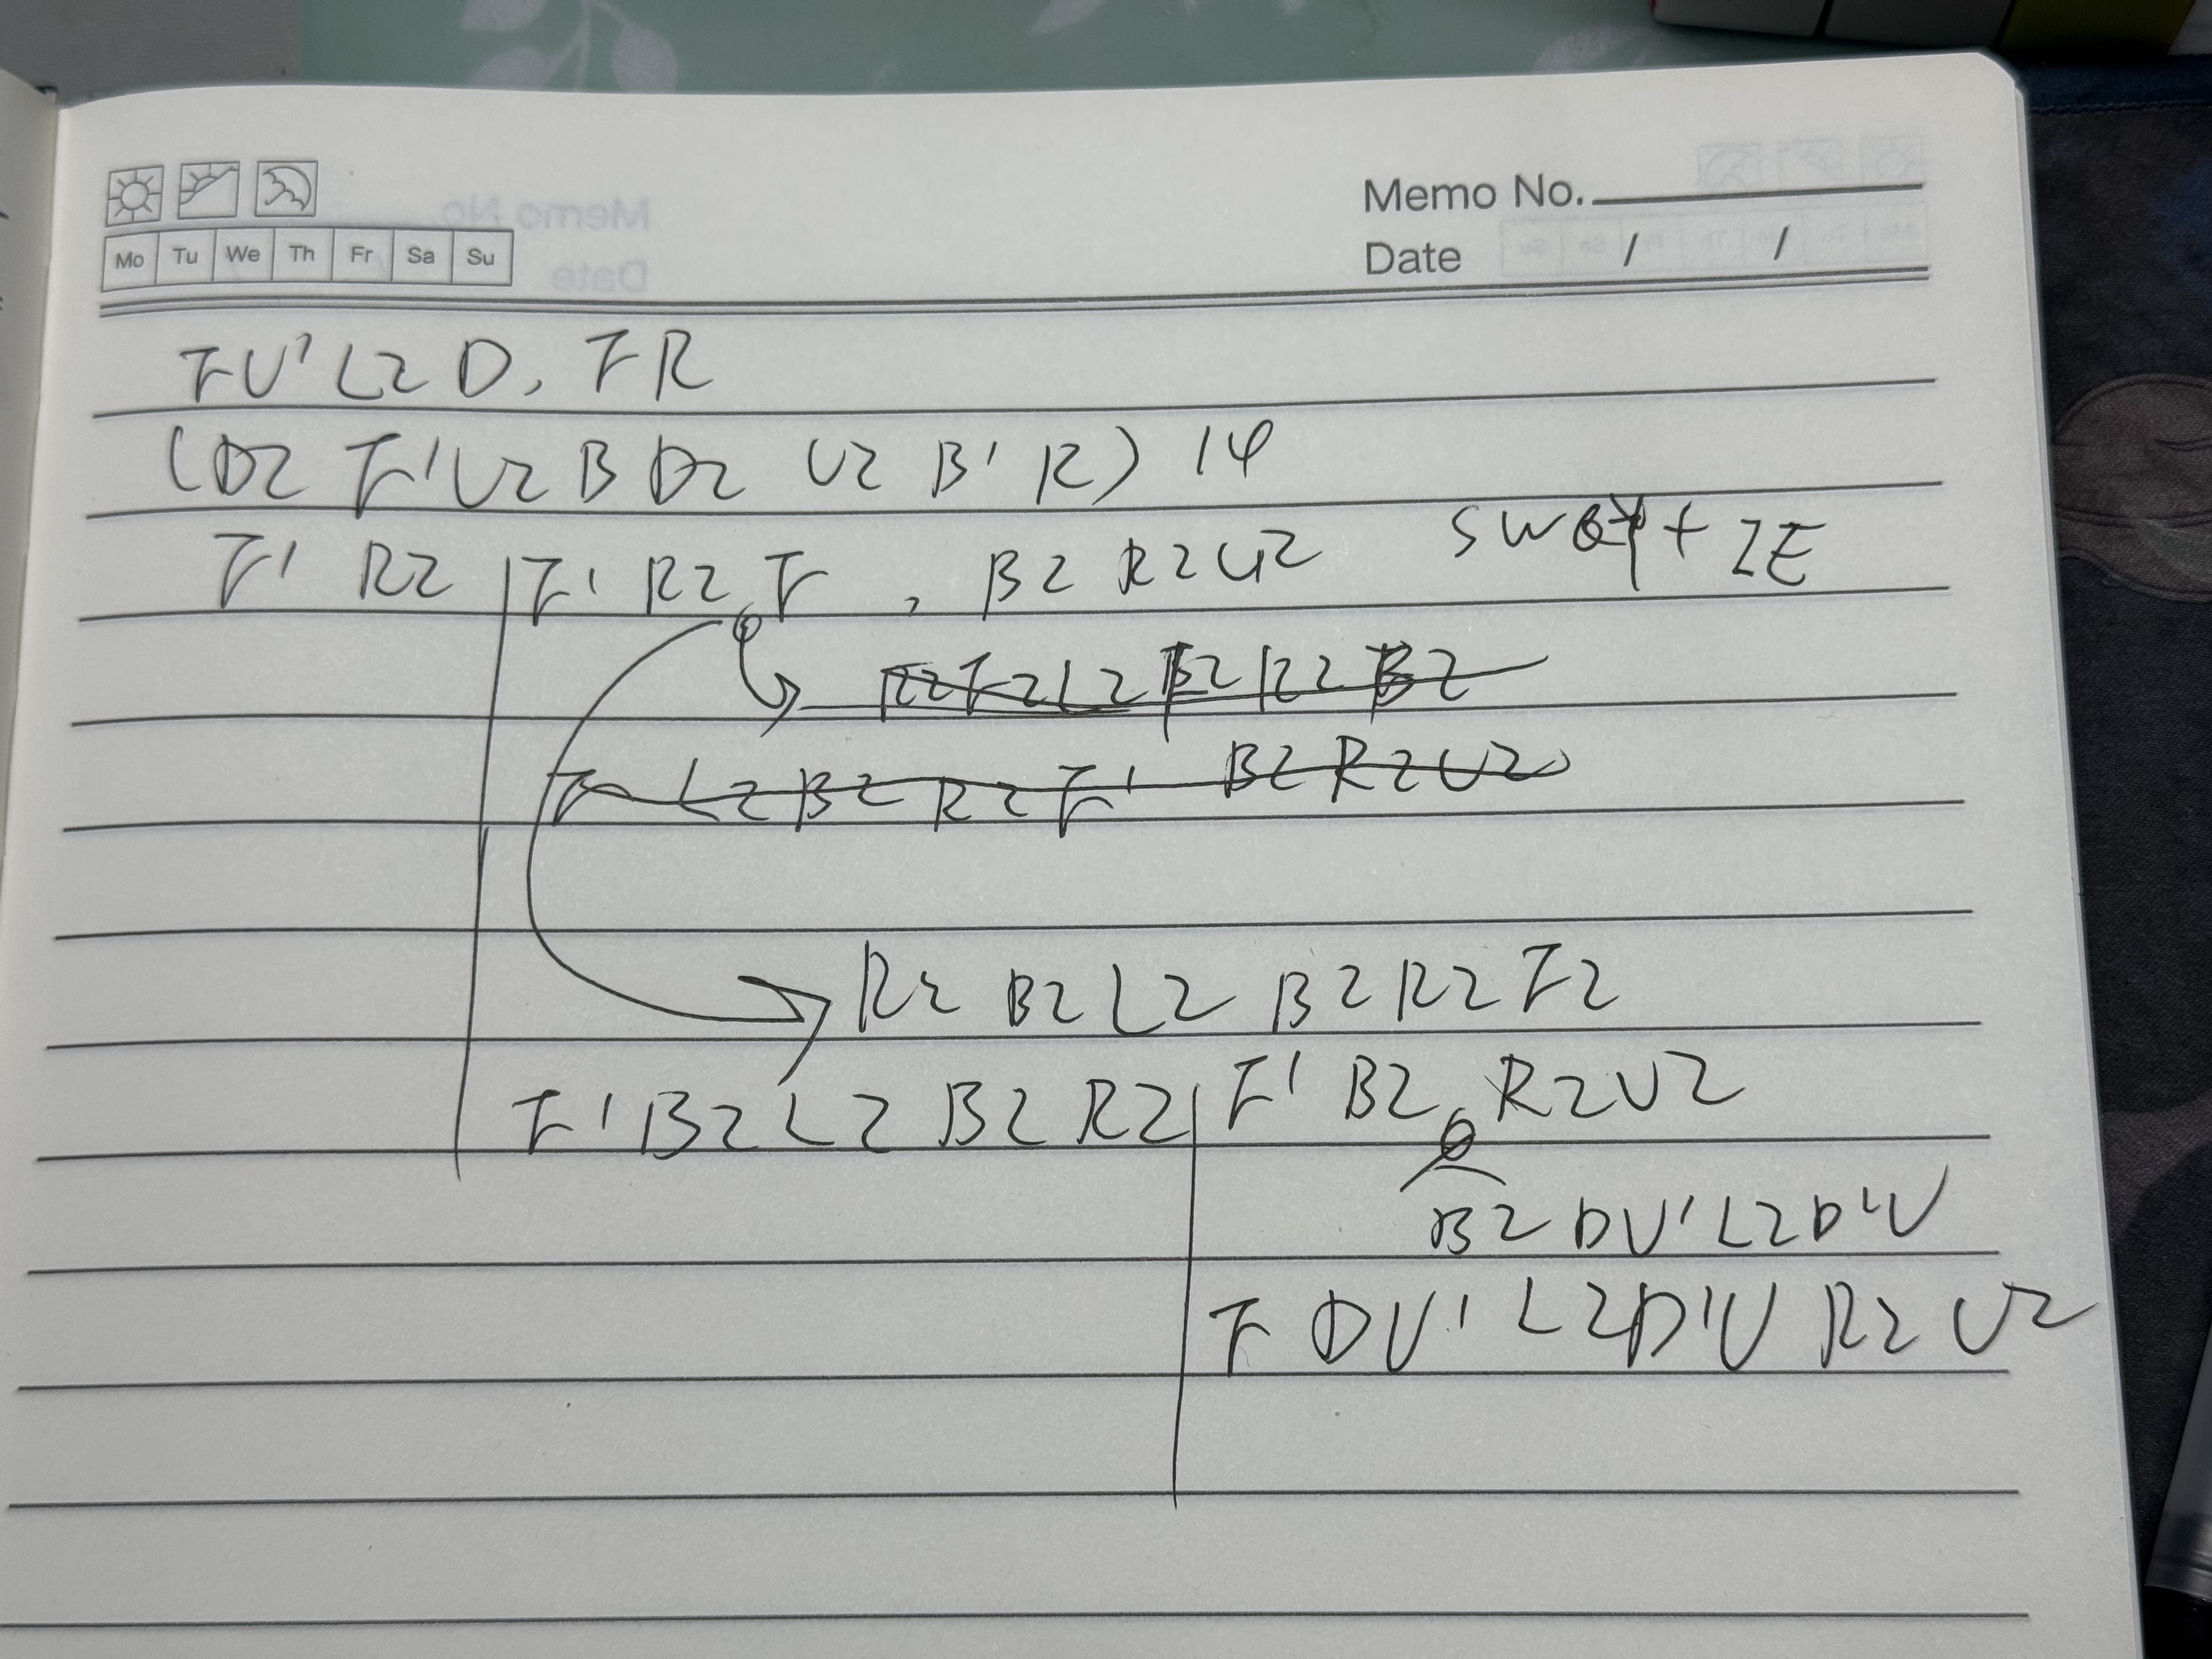 Memo No.
Mo Tu We Th Fr Sa Su
Date / /
F U' L2 D, F R
(D2 F' U2 B D2 U2 B' R) 14
F' R2 F' R2 F, B2 R2 U2 + 2E
R2 F2 L2 R2 B2
F L2 B2 R2 F' B2 R2 U2
R2 B2 L2 B2 R2 F2
F' B2 L2 B2 R2 F' B2 R2 U2
B2 D U' L2 D' U
F D U' L2 D' U R2 U2